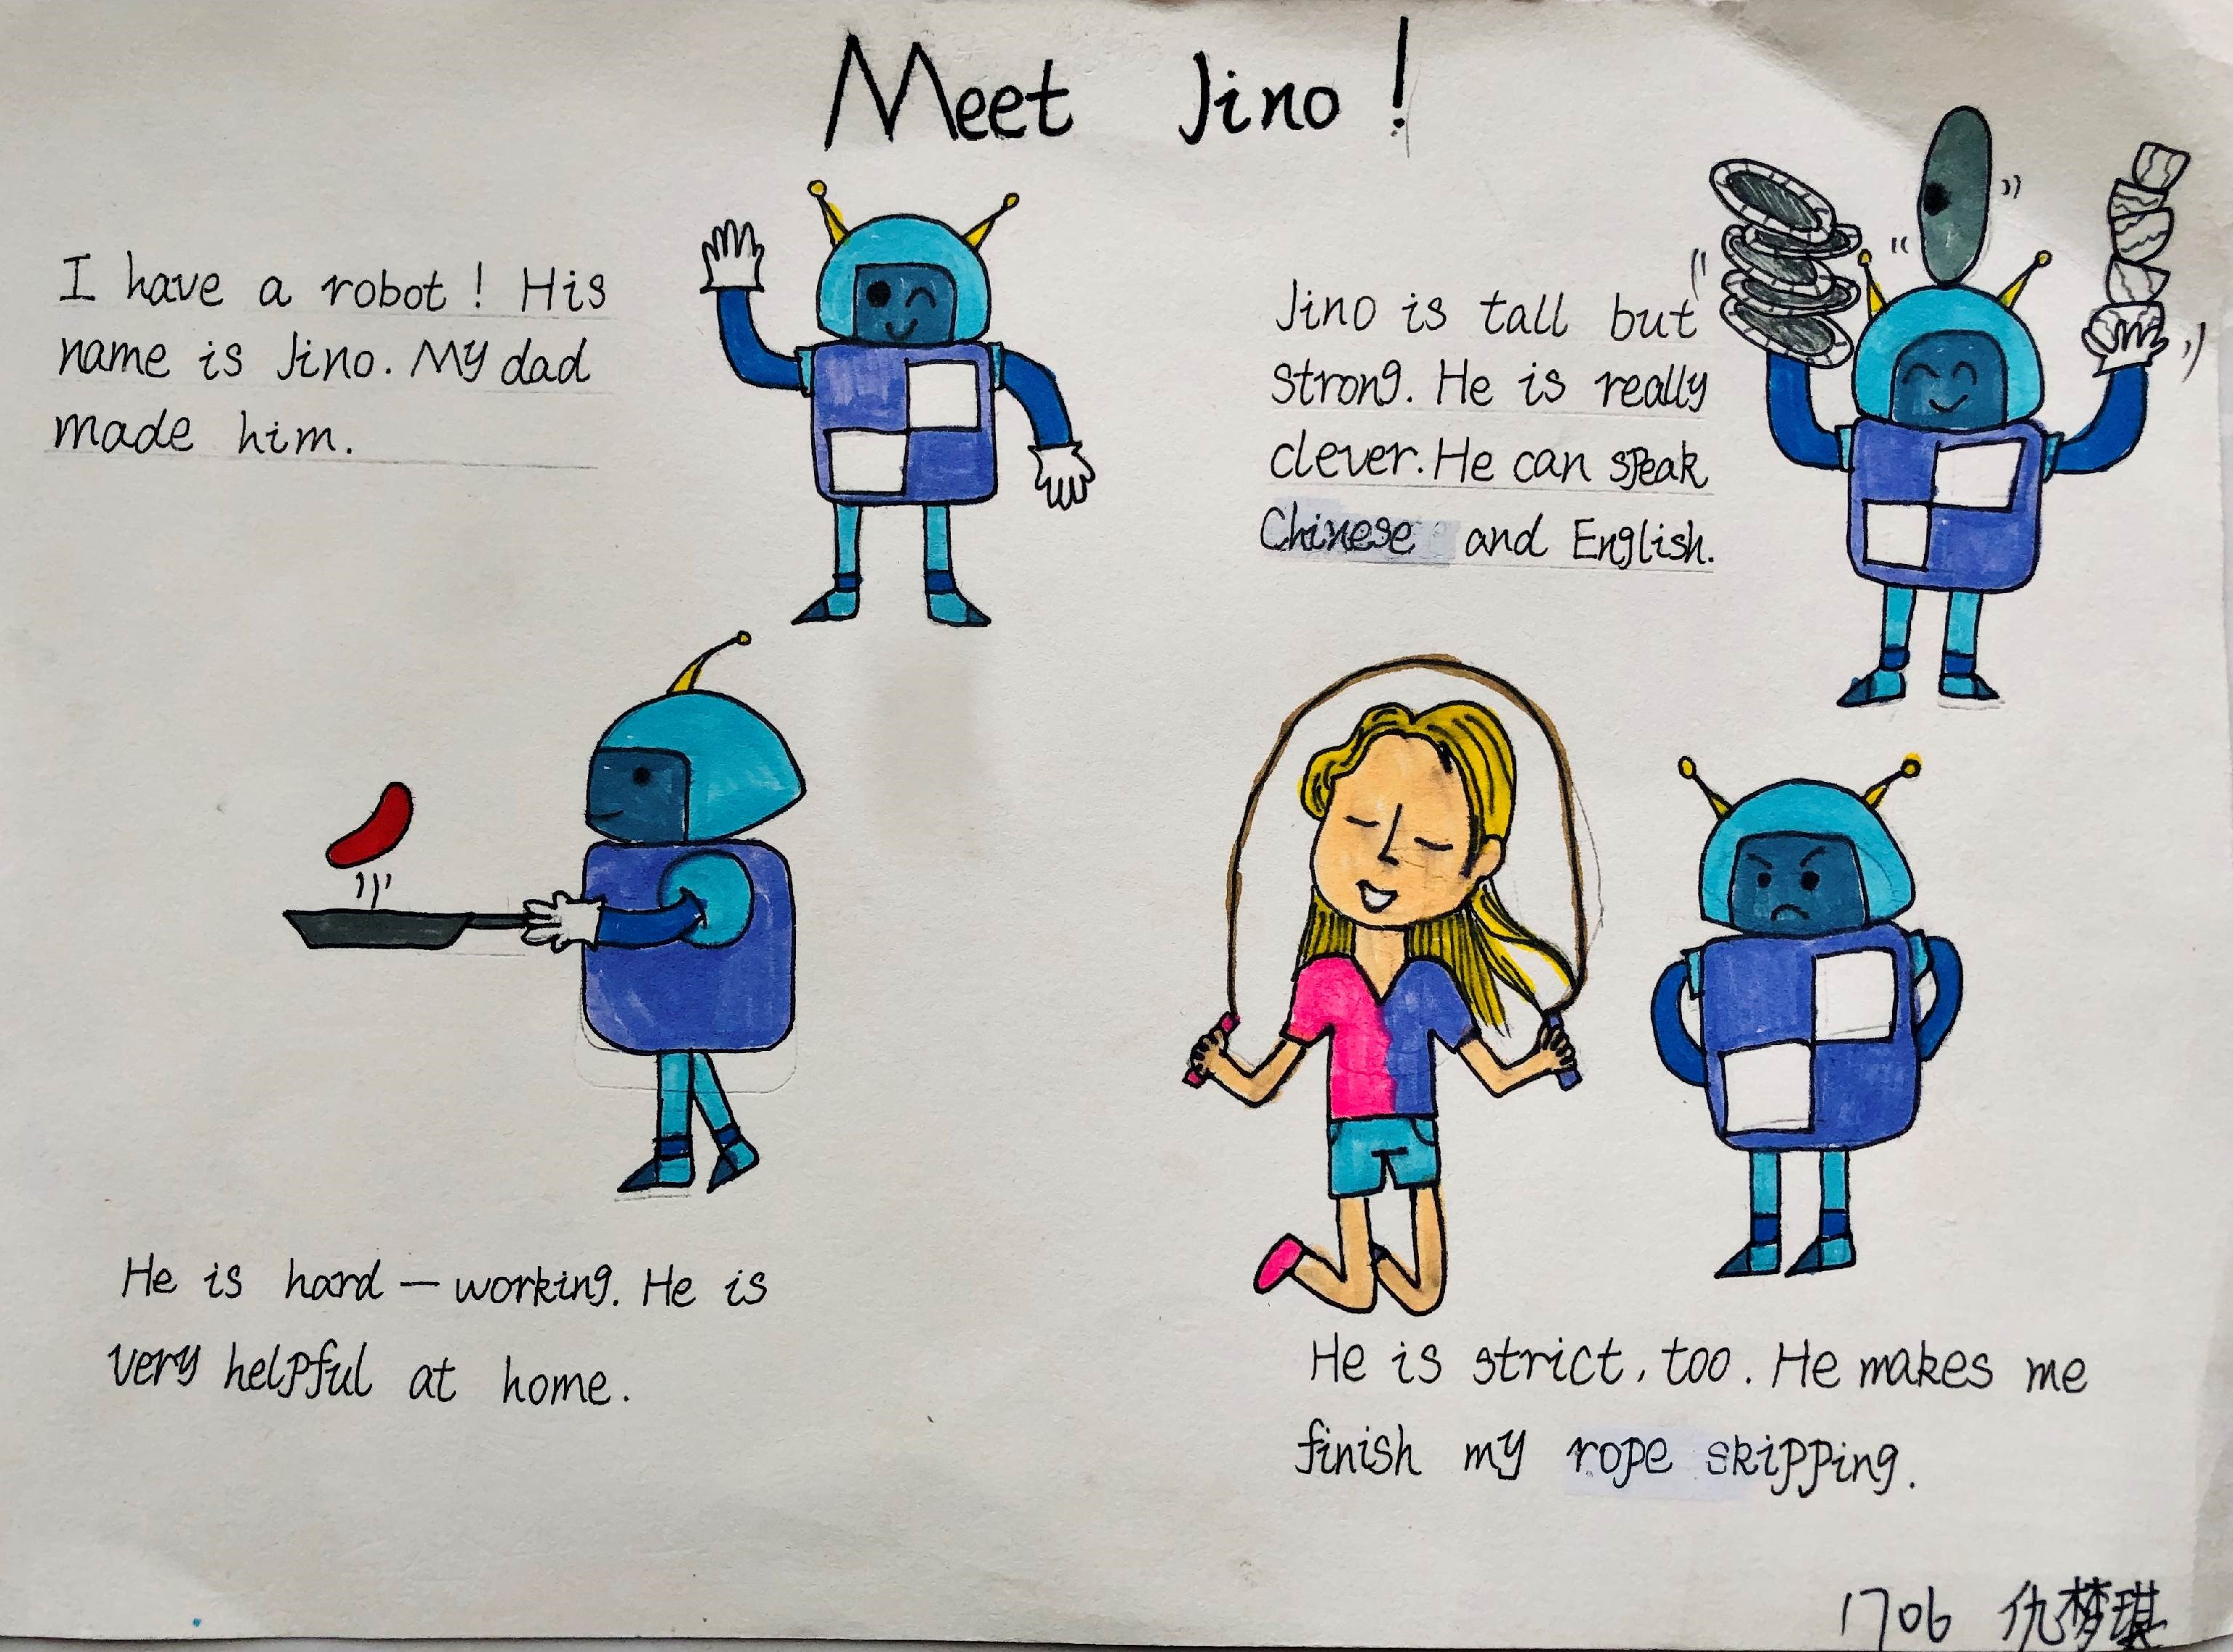 Meet Jino!
I have a robot! His
name is Jino. My dad
made him.
Jino is tall but
strong. He is really
clever. He can speak
Chinese and English.
He is hard—working. He is
very helpful at home.
He is strict, too. He makes me
finish my rope skipping.
1706 仇梦琪